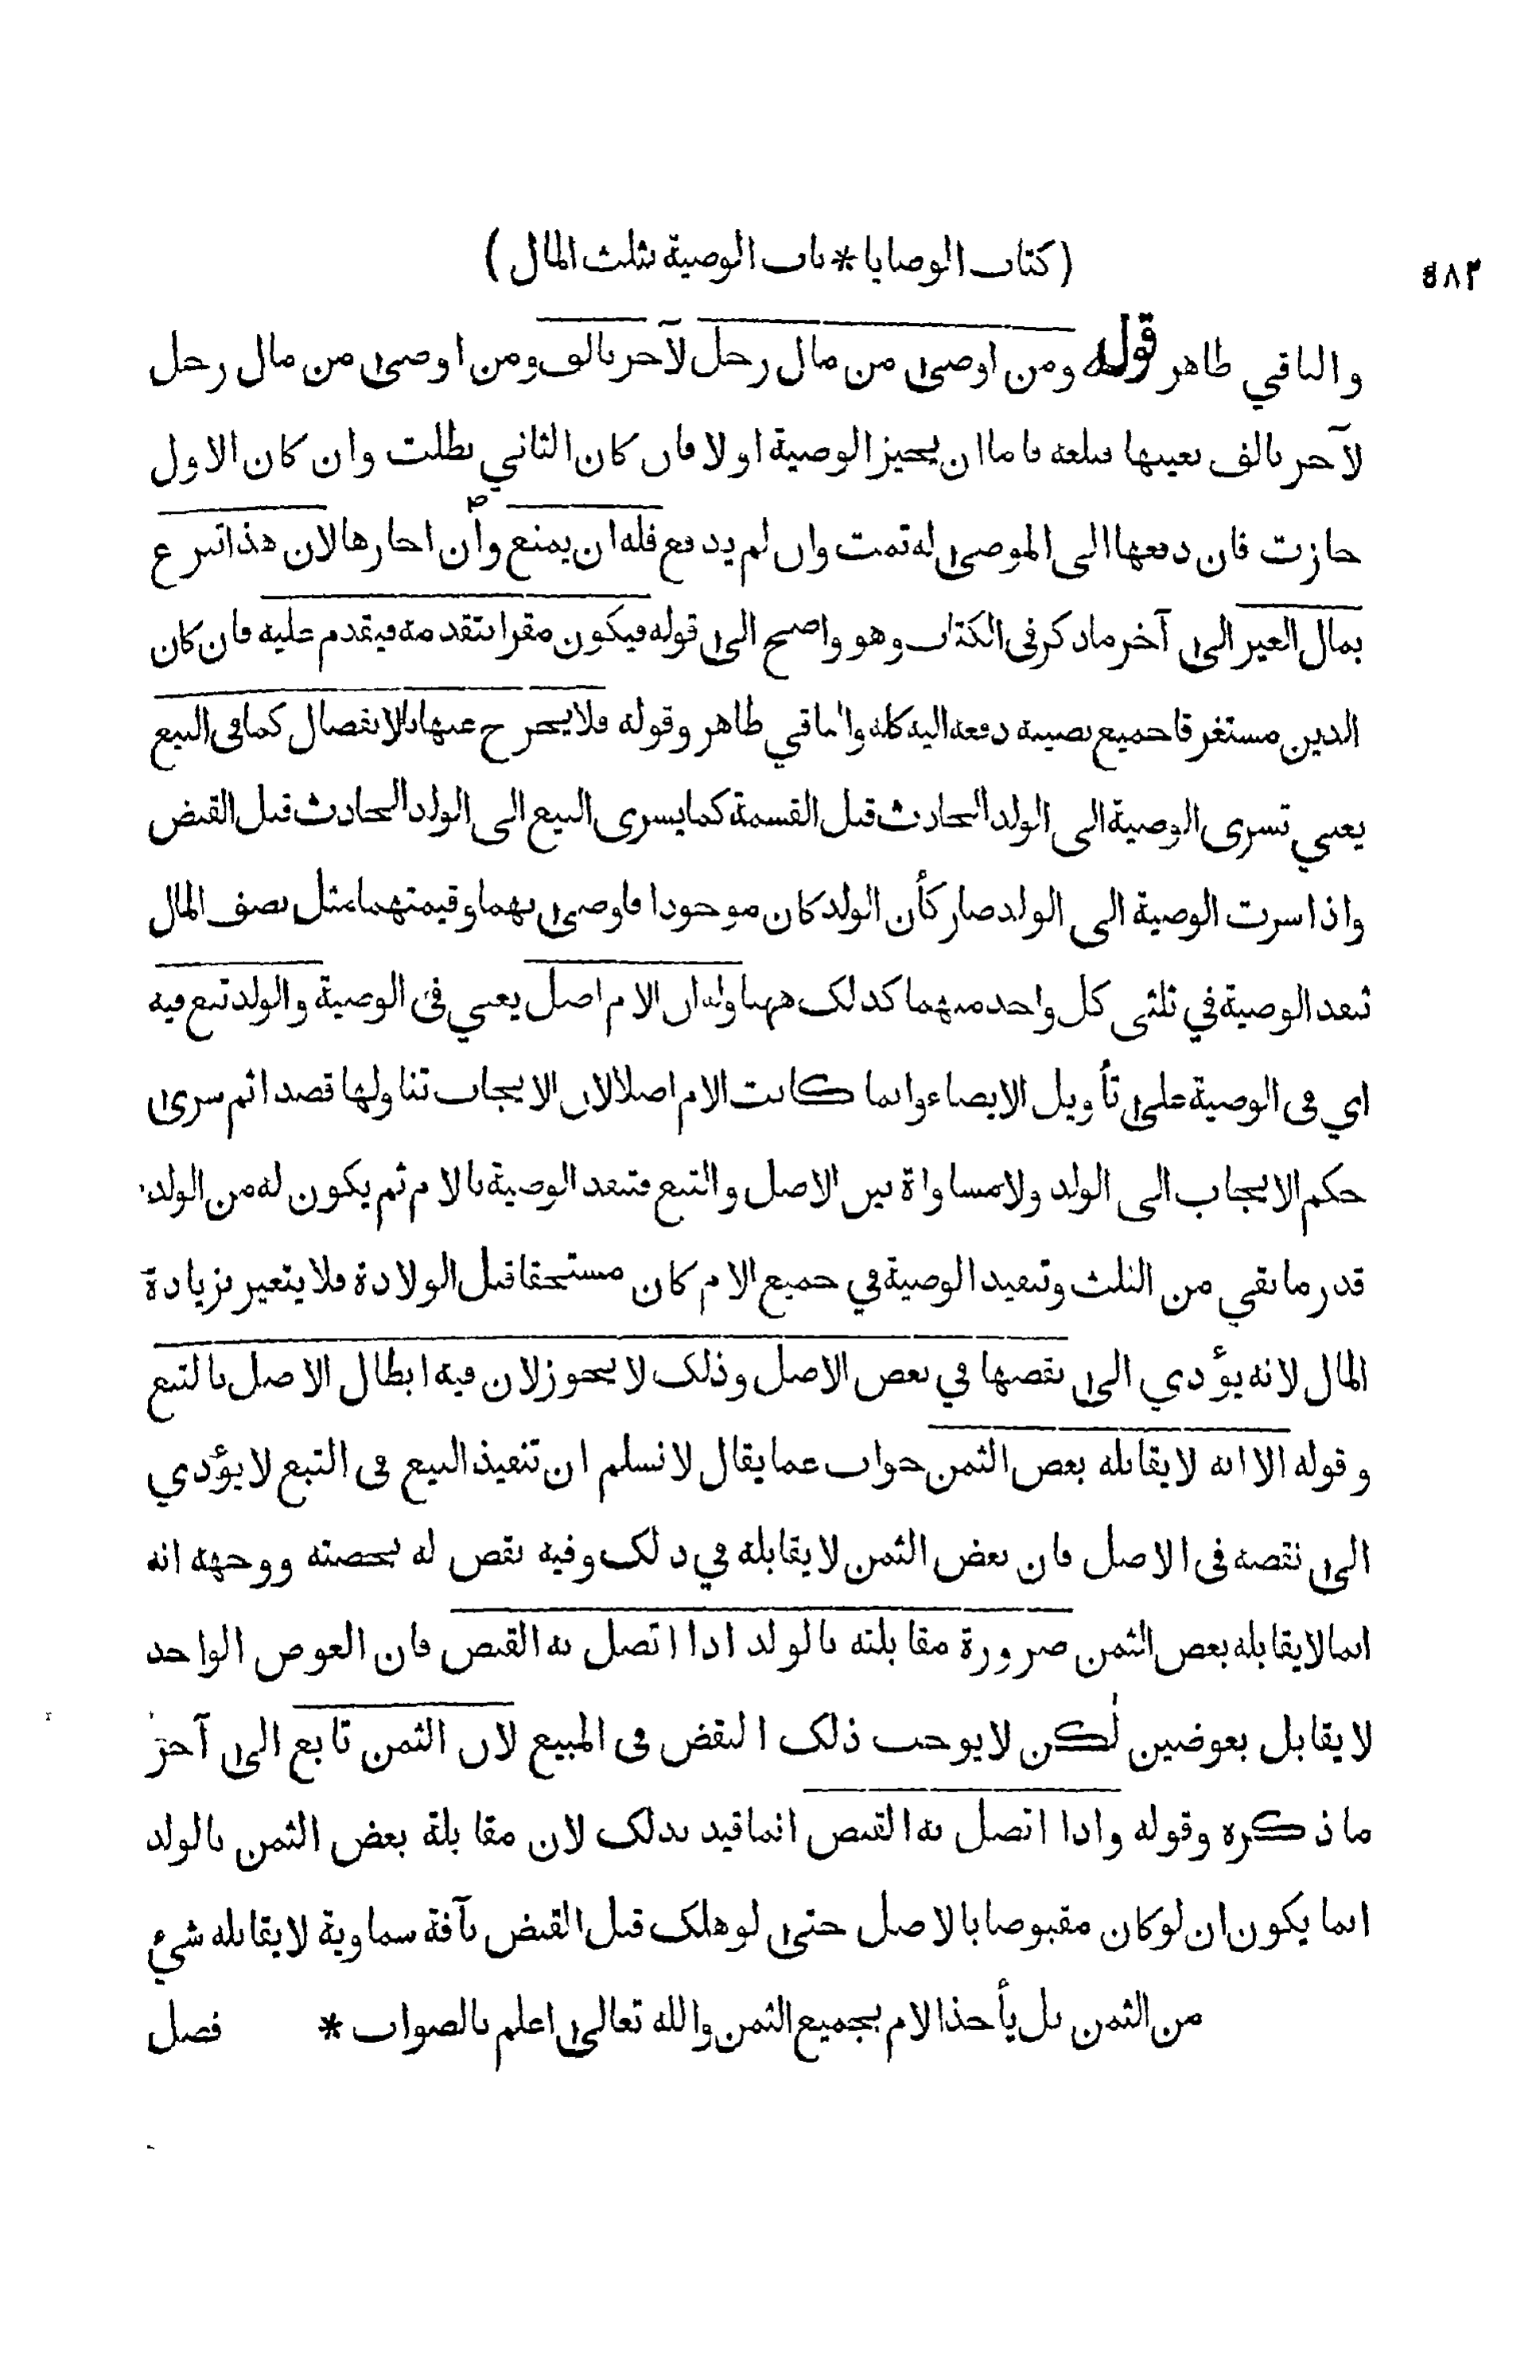 (كتاب الوصايا * باب الوصية بثلث المال) ٤٨٣
والباقي ظاهر قوله ومن اوصى من مال رجل لآخر بالف ومن اوصى من مال رجل
لآخر بالف بعينها فبلغه فاما ان يجيز الوصية او لا فان كان الثاني بطلت وان كان الاول
جازت فان دفعها الى الموصى له تمت وان لم يدفع فله ان يمنع وأن اجازها لان هذا تبرع
بمال الغير الى آخر ما ذكر في الكتاب وهو واضح الى قوله فيكون مقرا بتقدمه فيقدم عليه فان كان
الدين مستغرقا جميع نصيبه دفعه اليه كله والباقي ظاهر وقوله فلا يخرج عنها بالانفصال كما في البيع
يعني تسري الوصية الى الولد الحادث قبل القسمة كما يسري البيع الى الولد الحادث قبل القبض
واذا سرت الوصية الى الولد صار كأن الولد كان موجودا فاوصى بهما وقيمتهما مثل نصف المال
تنفذ الوصية في ثلثي كل واحد منهما كذلك ههنا وله ان الام اصل يعني في الوصية والولد تبع فيه
اي في الوصية على تأويل الايصاء وانما كانت الام اصلا لان الايجاب تناولها قصدا ثم سرى
حكم الايجاب الى الولد ولا مساواة بين الاصل والتبع فتنفذ الوصية بالام ثم يكون له من الولد
قدر ما بقي من الثلث وتنفيذ الوصية في جميع الام كان مستحقا قبل الولادة فلا يتغير بزيادة
المال لانه يؤدي الى نقضها في بعض الاصل وذلك لا يجوز لان فيه ابطال الاصل بالتبع
وقوله الا انه لا يقابله بعض الثمن جواب عما يقال لا نسلم ان تنفيذ البيع في التبع لا يؤدي
الى نقضه في الاصل فان بعض الثمن لا يقابله في ذلك وفيه نقض له بحصته ووجهه انه
انما لا يقابله بعض الثمن ضرورة مقابلته بالولد اذا اتصل به القبض فان العوض الواحد
لا يقابل بعوضين لكن لا يوجب ذلك النقض في المبيع لان الثمن تابع الى آخر
ما ذكره وقوله واذا اتصل به القبض انما قيد بذلك لان مقابلة بعض الثمن بالولد
انما يكون ان لو كان مقبوضا بالاصل حتى لو هلك قبل القبض بآفة سماوية لا يقابله شئ
من الثمن بل يأخذ الام بجميع الثمن والله تعالى اعلم بالصواب * فصل